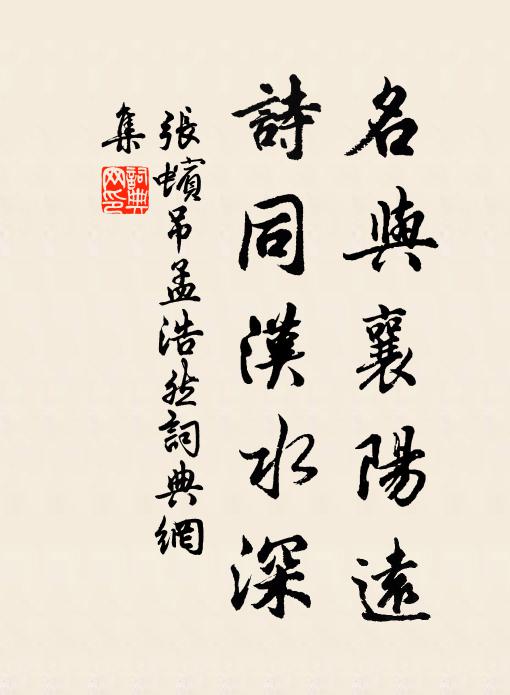 名與襄陽遠
詩同漢水深
張蠙吊孟浩然詞典網
集
詞典網印